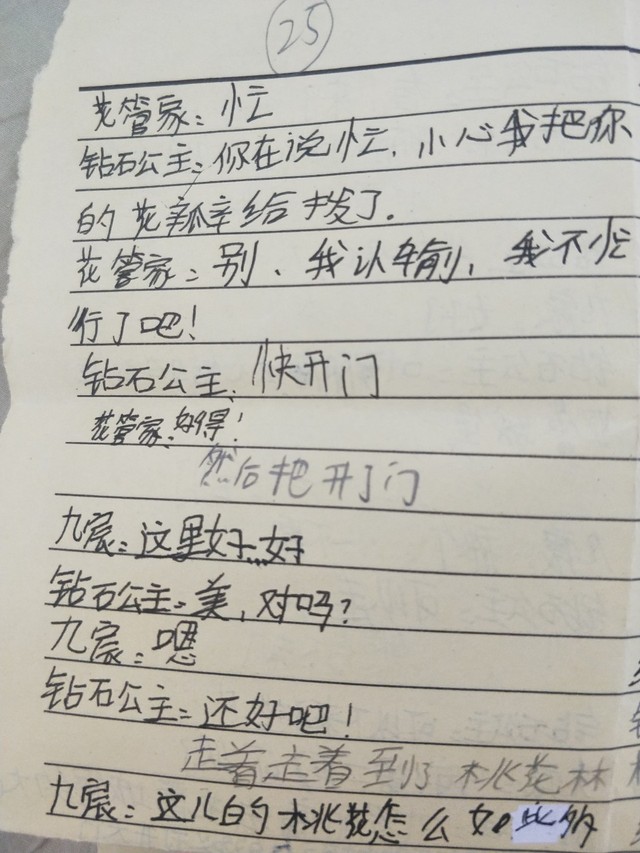 25
花管家：忙
钻石公主：你在说忙，小心我把你
的花瓣给拨了.
花管家：别、我认输，我不忙
行了吧！
钻石公主：快开门
花管家：好得！
然后把开了门
九宸：这里好…好
钻石公主：美，对吗？
九宸：嗯
钻石公主：还好吧！
走着走着到了桃花林
九宸：这儿的桃花怎么如此多